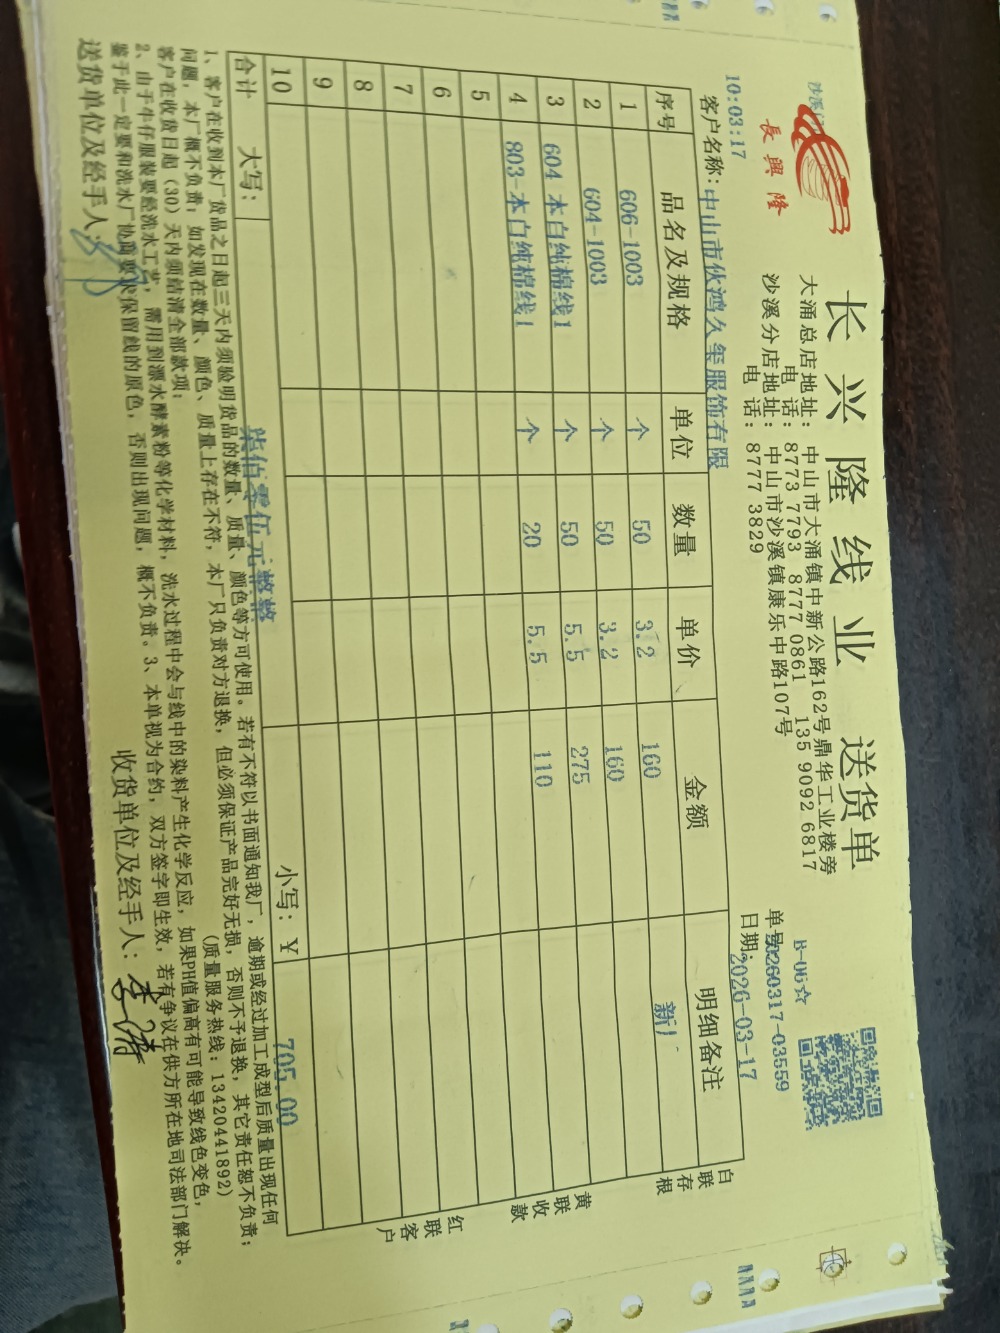 長興隆
长兴隆线业 送货单
大涌总店地址：中山市大涌镇中新公路162号鼎华工业楼旁
电 话：8773 7793 8777 0861 135 9092 6817
沙溪分店地址：中山市沙溪镇康乐中路107号
电 话：8777 3829
B-06☆
单号20260317-03559
日期：2026-03-17
10:03:17
客户名称：中山市伙鸿久玺服饰有限
序号 品名及规格 单位 数量 单价 金额 明细备注
1 606-1003 个 50 3.2 160 新厂
2 604-1003 个 50 3.2 160
3 604 本白纯棉线1 个 50 5.5 275
4 803-本白纯棉线1 个 20 5.5 110
5
6
7
8
9
10
合计 大写： 柒佰零伍元整整 小写：¥ 705.00
白联存根
黄联收款
红联客户
1、客户在收到本厂货品之日起三天内须验明货品的数量、质量、颜色等方可使用。若有不符以书面通知我厂，逾期或经过加工成型后质量出现任何
问题，本厂概不负责；如发现在数量、颜色、质量上存在不符，本厂只负责对方退换，但必须保证产品完好无损，否则不予退换，其它责任恕不负责；
客户在收货日起（30）天内须结清全部款项；
(质量服务热线：13420441892)
2、由于牛仔服装要经洗水工艺，需用到漂水酵素粉等化学材料，洗水过程中会与线中的染料产生化学反应，如果PH值偏高有可能导致线色变色，
鉴于此一定要和洗水厂协商要求保留线的原色，否则出现问题，概不负责。3、本单视为合约，双方签字即生效，若有争议在供方所在地司法部门解决。
送货单位及经手人：
收货单位及经手人：